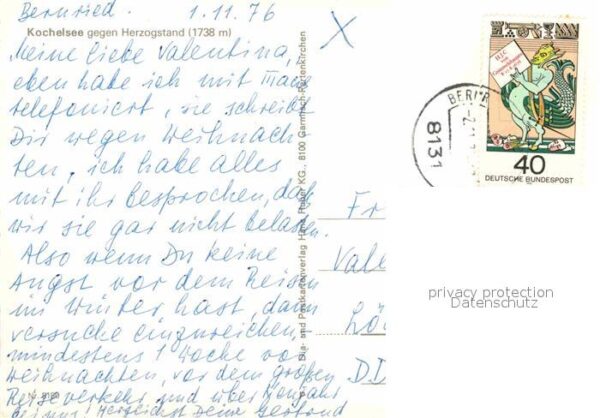 Bernried. 1.11.76
Kochelsee gegen Herzogstand (1738 m)
Meine liebe Valentina,
eben habe ich mit
telefoniert, sie schreibt
Dir wegen Weihnach-
ten, ich habe alles
mit ihr besprochen, daß
wir sie gar nicht belasten.
Also wenn Du keine
Angst vor dem Reisen
im Winter hast, dann
versuche einzureichen,
mindestens 1 Woche vor
Weihnachten, vor dem großen
Reiseverkehr und über Neujahr
Herzlichst Deine
Dia- und Postkartenverlag Hans Huber KG., 8100 Garmisch-Partenkirchen
X
8131
40
DEUTSCHE BUNDESPOST
Fr
Vale
D.D
privacy protection
Datenschutz